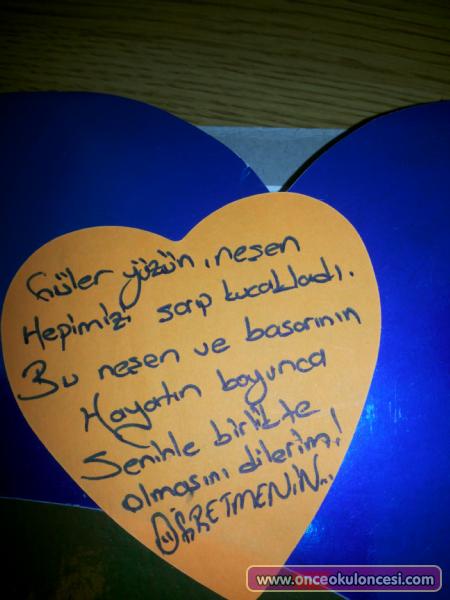 Güler yüzün, neşen
Hepimizi sarıp kucakladı.
Bu neşen ve başarının
Hayatın boyunca
Seninle birlikte
olmasını dilerim!
ÖĞRETMENİN..
www.onceokuloncesi.com